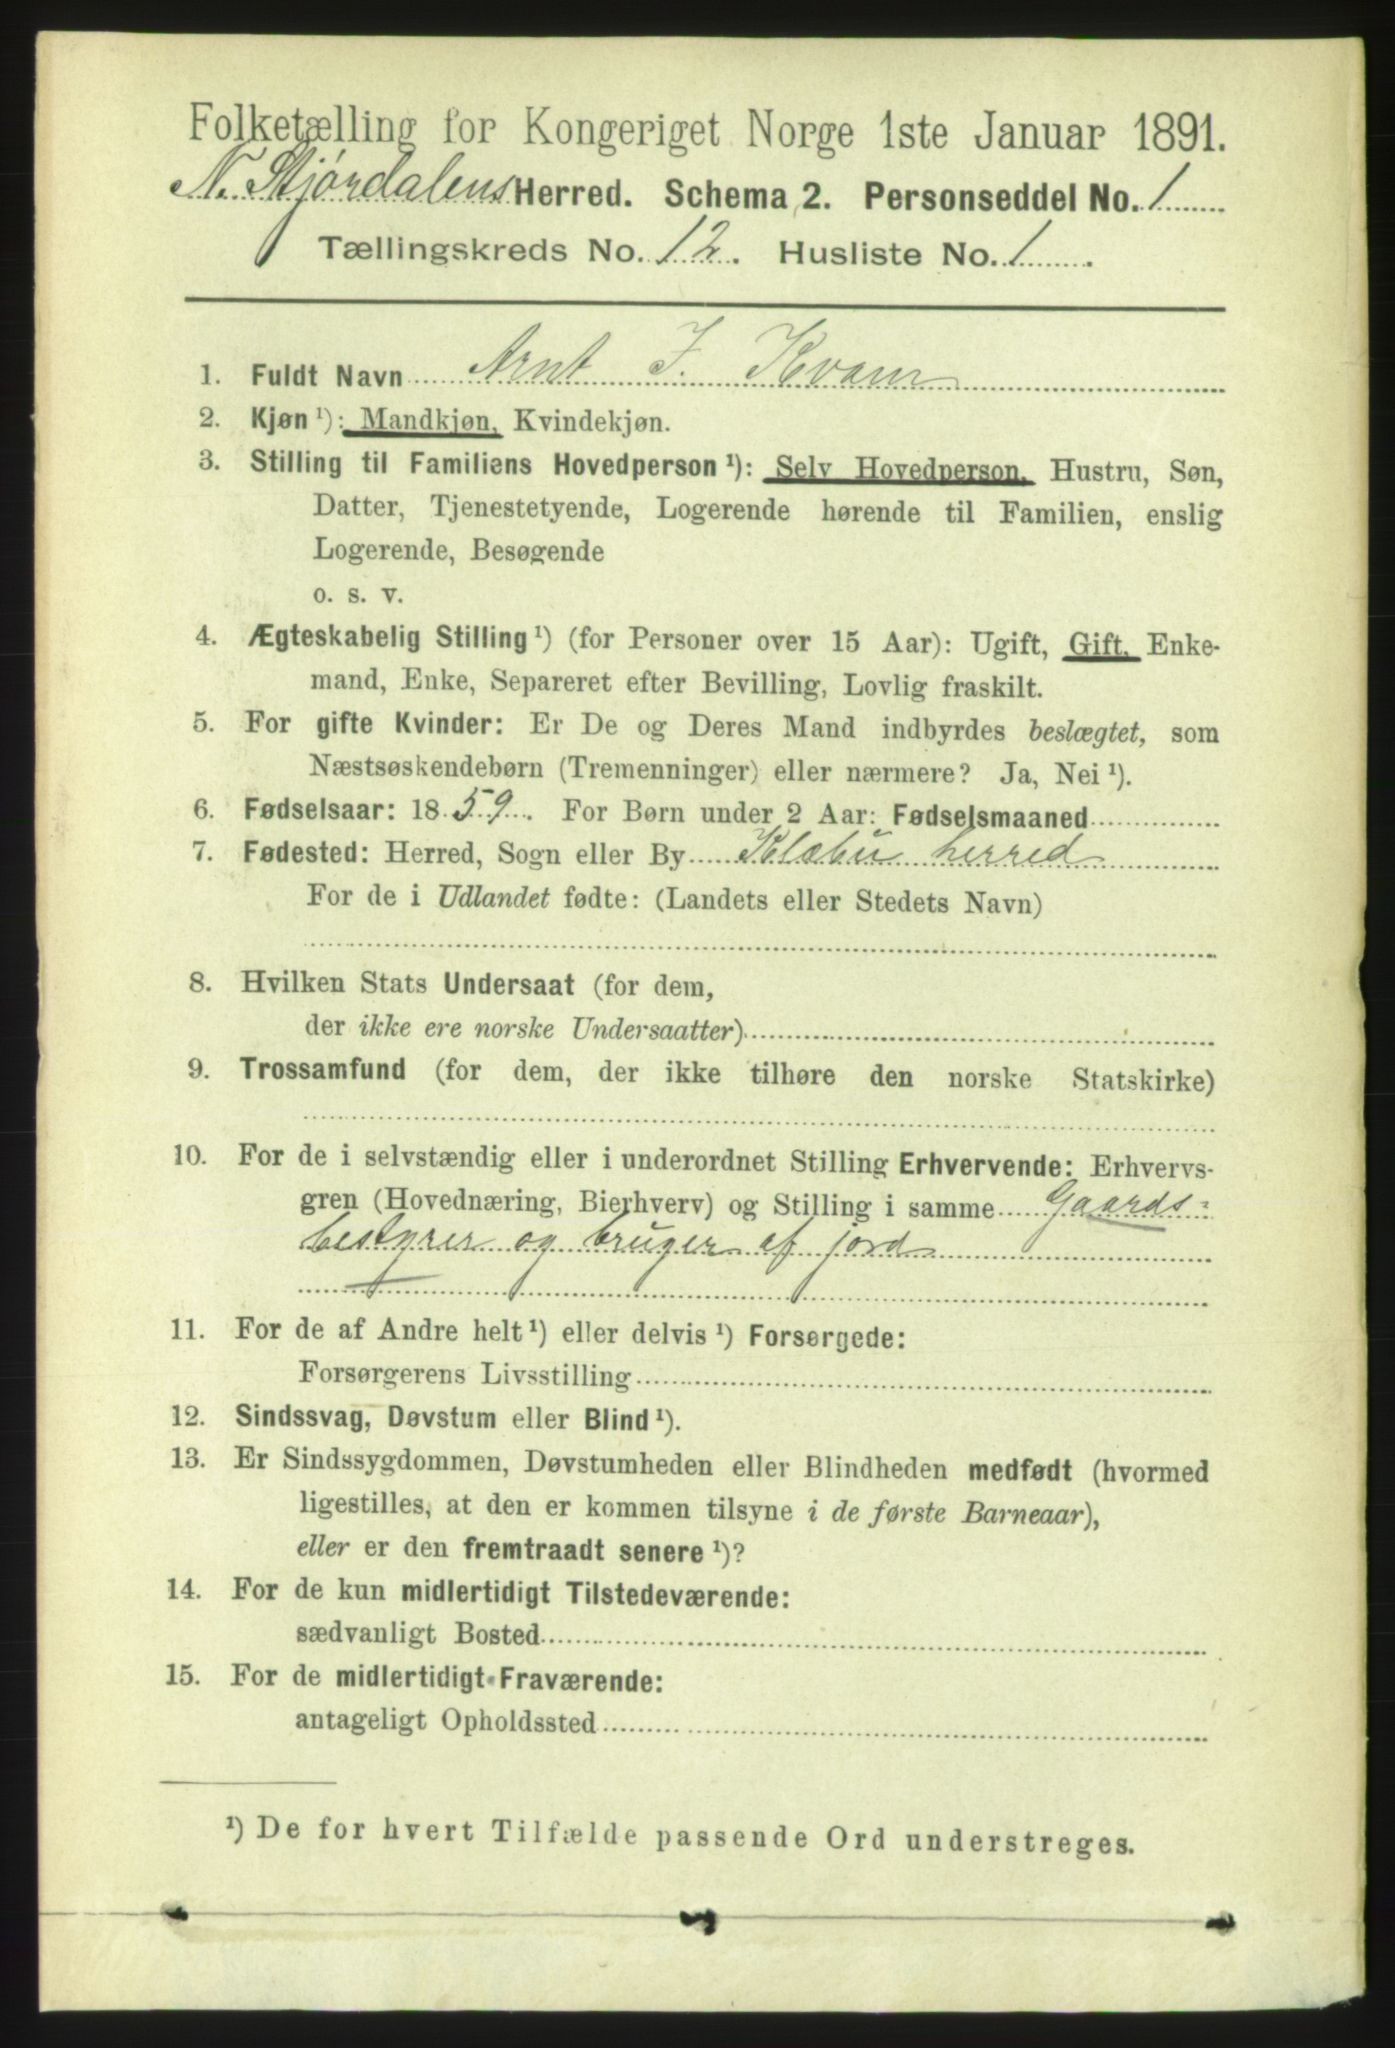 Folketælling for Kongeriget Norge 1ste Januar 1891.
N. Stjørdalens Herred. Schema 2. Personseddel No. 1
Tællingskreds No. 12. Husliste No. 1.
1. Fuldt Navn Arnt J. Kvam
2. Kjøn ¹): Mandkjøn, Kvindekjøn.
3. Stilling til Familiens Hovedperson ¹): Selv Hovedperson, Hustru, Søn,
Datter, Tjenestetyende, Logerende hørende til Familien, enslig
Logerende, Besøgende
o. s. v.
4. Ægteskabelig Stilling ¹) (for Personer over 15 Aar): Ugift, Gift, Enke-
mand, Enke, Separeret efter Bevilling, Lovlig fraskilt.
5. For gifte Kvinder: Er De og Deres Mand indbyrdes beslægtet, som
Næstsøskendebørn (Tremenninger) eller nærmere? Ja, Nei ¹).
6. Fødselsaar: 1859. For Børn under 2 Aar: Fødselsmaaned
7. Fødested: Herred, Sogn eller By Klæbu herred
For de i Udlandet fødte: (Landets eller Stedets Navn)
8. Hvilken Stats Undersaat (for dem,
der ikke ere norske Undersaatter)
9. Trossamfund (for dem, der ikke tilhøre den norske Statskirke)
10. For de i selvstændig eller i underordnet Stilling Erhvervende: Erhvervs-
gren (Hovednæring, Bierhverv) og Stilling i samme Gaards-
bestyrer og bruger af jord
11. For de af Andre helt ¹) eller delvis ¹) Forsørgede:
Forsørgerens Livsstilling
12. Sindssvag, Døvstum eller Blind ¹).
13. Er Sindssygdommen, Døvstumheden eller Blindheden medfødt (hvormed
ligestilles, at den er kommen tilsyne i de første Barneaar),
eller er den fremtraadt senere ¹)?
14. For de kun midlertidigt Tilstedeværende:
sædvanligt Bosted
15. For de midlertidigt Fraværende:
antageligt Opholdssted
¹) De for hvert Tilfælde passende Ord understreges.